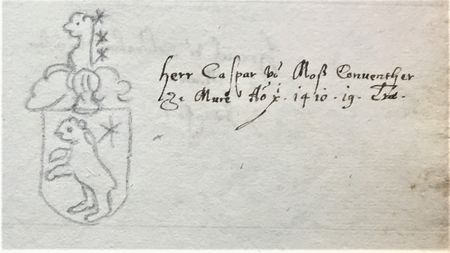 Herr Caspar vo Moß Conventher
ze Mure Ao x. 1410. 19.